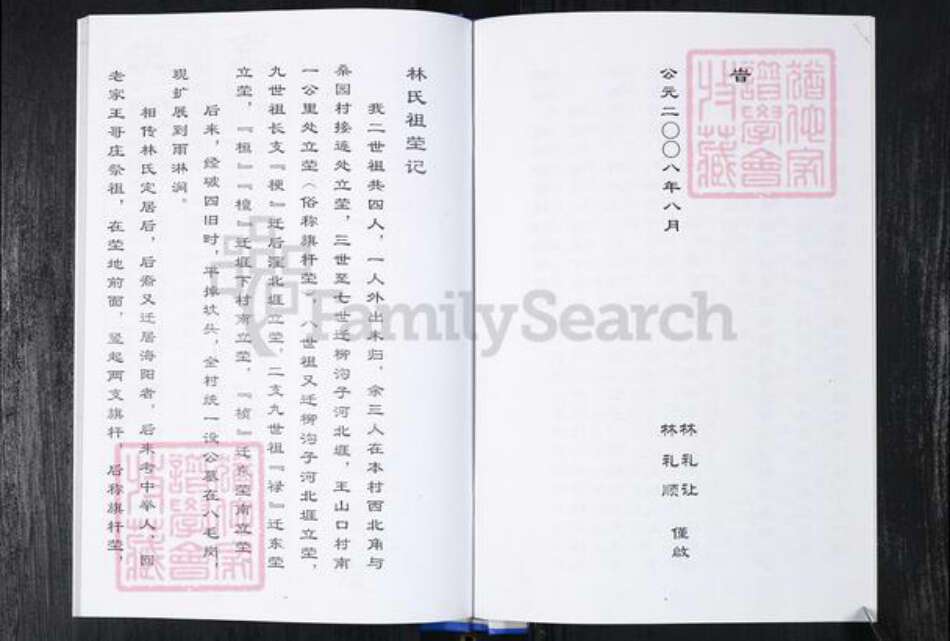 旹
公元二〇〇八年八月
林礼让
林礼顺
僅啟
林氏祖茔记
我二世祖共四人，一人外出未归，余三人在本村西北角与
桑园村接连处立茔，三世至七世迁柳沟子河北堐，王山口村南
一公里处立茔（俗称旗杆茔），八世祖又迁柳沟子河北堐立茔，
九世祖长支『梗』迁后洼北堐立茔，二支九世祖『禄』迁东茔
立茔，『桓』『檀』迁堐下村南立茔，『桢』迁东茔南立茔。
后来，经破四旧时，平掉坟头，全村统一设公墓在八毛岗，
现扩展到雨淋涧。
相传林氏定居后，后裔又迁居海阳者，后来考中举人，回
老家王哥庄祭祖，在茔地前面，竖起两支旗杆，后称旗杆茔，
FamilySearch
猶他家
譜學會
收藏
猶他家
譜學會
收藏